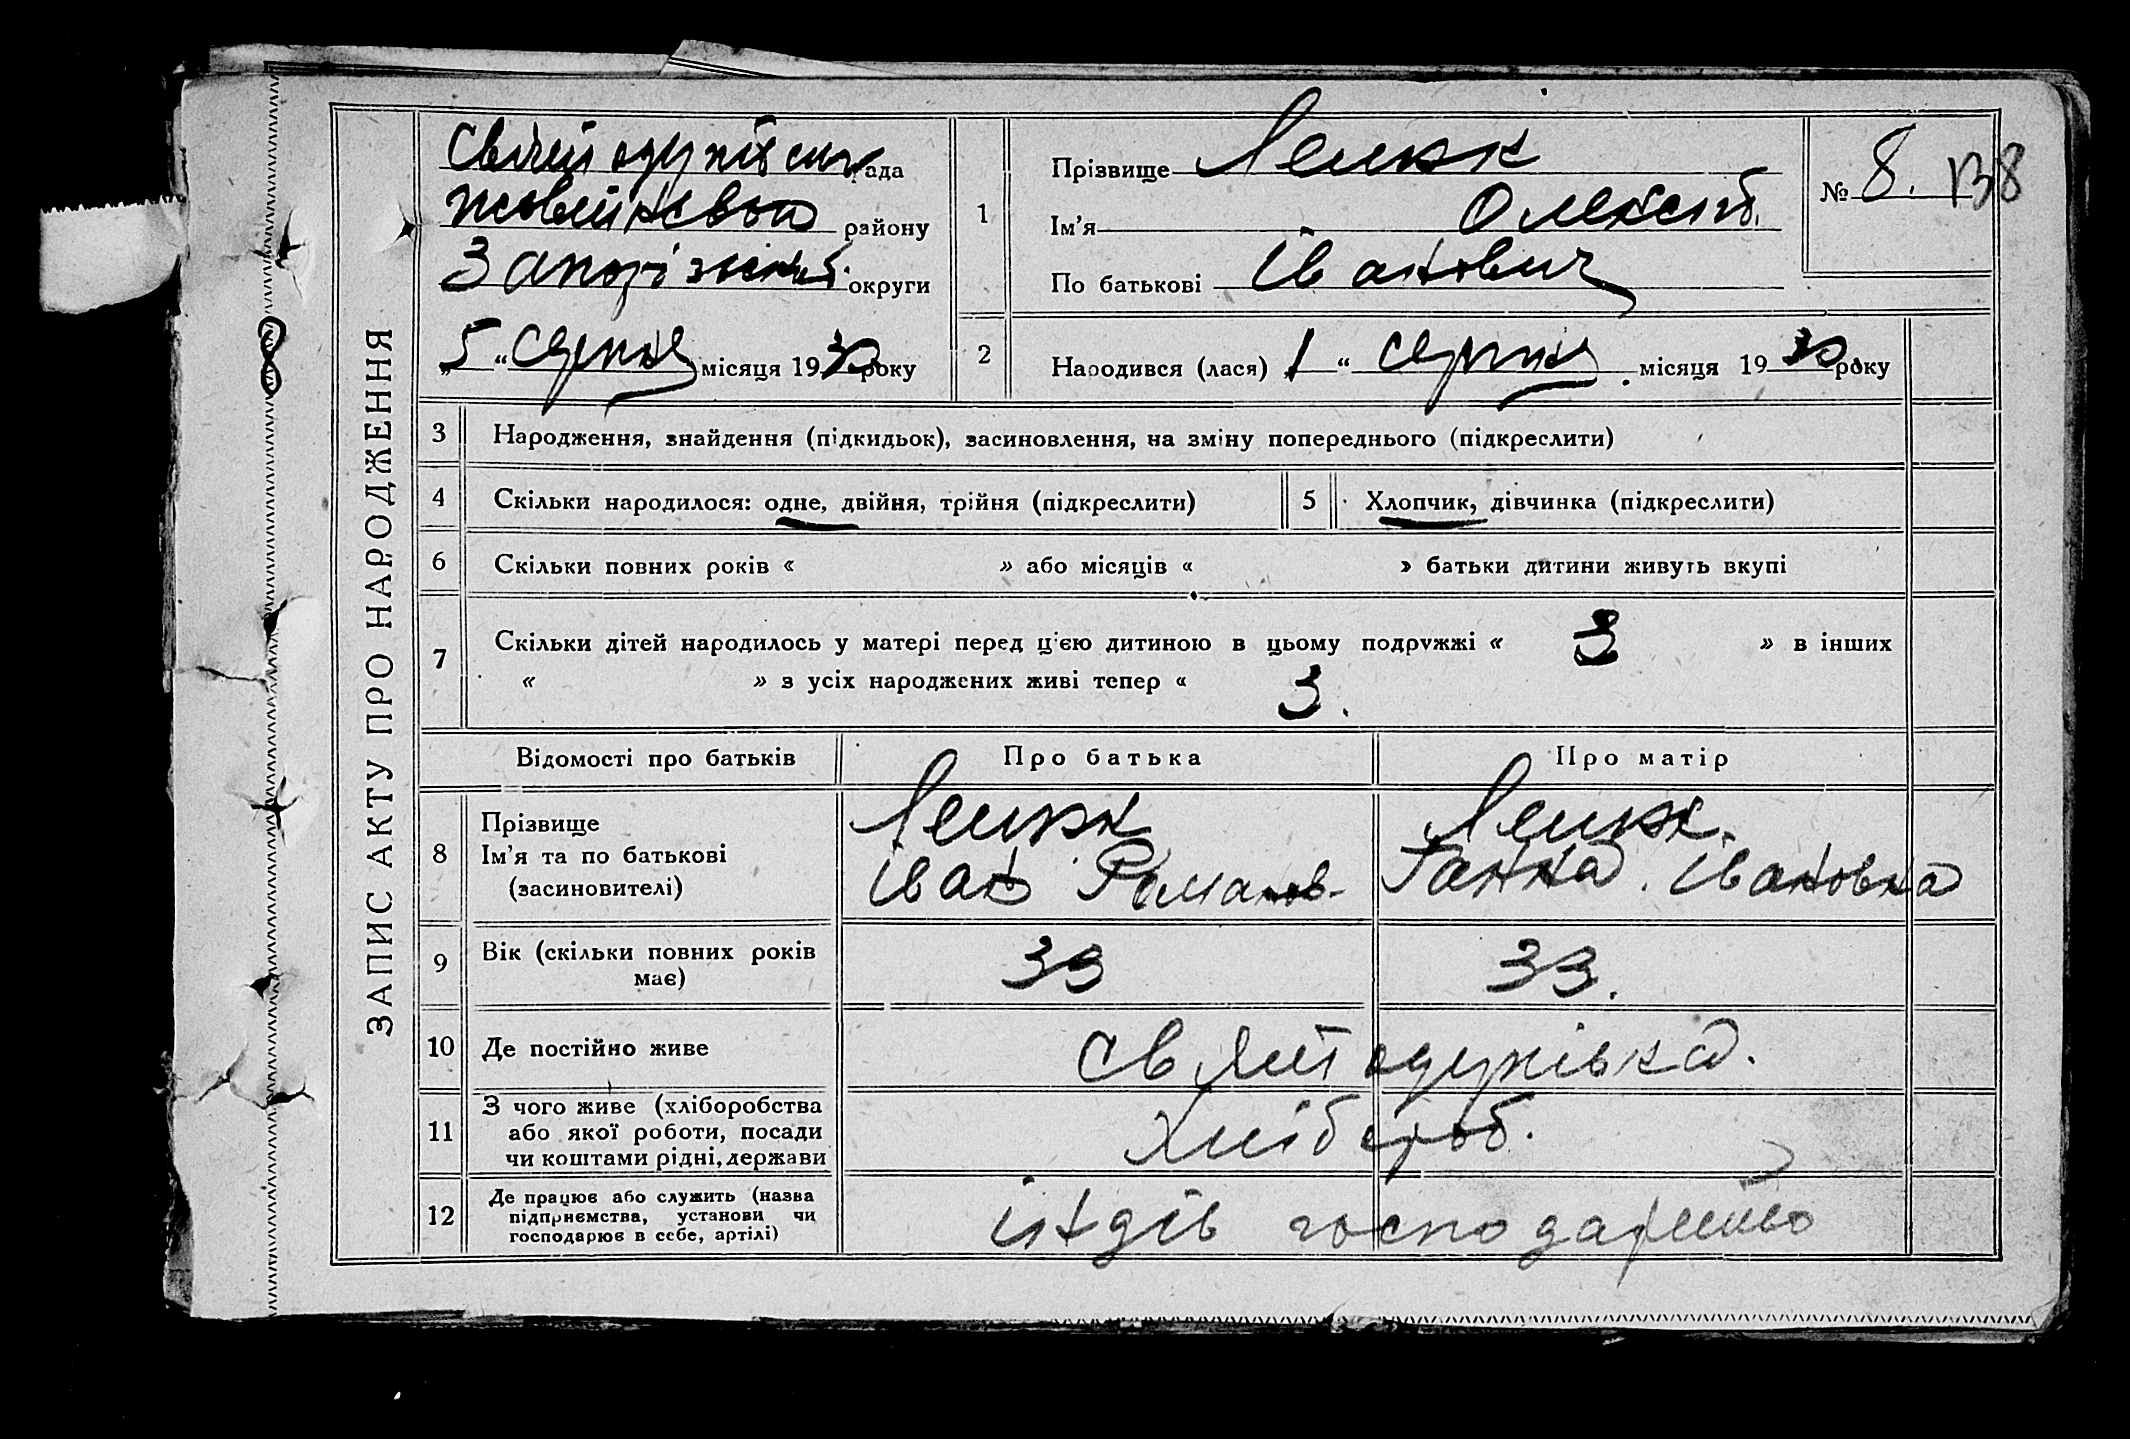 ЗАПИС АКТУ ПРО НАРОДЖЕННЯ
рада
району
округи
„ 5 “ серпня місяця 1930 року
1
Прізвище
Ім'я Олексій
По батькові Іванович
№ 8. 138
2
Народився (лася) „ 1 “ серпня місяця 1930 року
3 Народження, знайдення (підкидьок), засиновлення, на зміну попереднього (підкреслити)
4 Скільки народилося: одне, двійня, трійня (підкреслити)
5 Хлопчик, дівчинка (підкреслити)
6 Скільки повних років « » або місяців « » батьки дитини живуть вкупі
7 Скільки дітей народилось у матері перед цією дитиною в цьому подружжі « 3 » в інших
« » з усіх народжених живі тепер « 3.
Відомості про батьків Про батька Про матір
8
Прізвище
Ім'я та по батькові
(засиновителі)
Іван Романов-
Ганна Івановна
9
Вік (скільки повних років
має)
33 33.
10 Де постійно живе Святодухівка.
11
З чого живе (хліборобства
або якої роботи, посади
чи коштами рідні, держави
Хлібороб.
12
Де працює або служить (назва
підприємства, установи чи
господарює в себе, артілі)
індів господарство